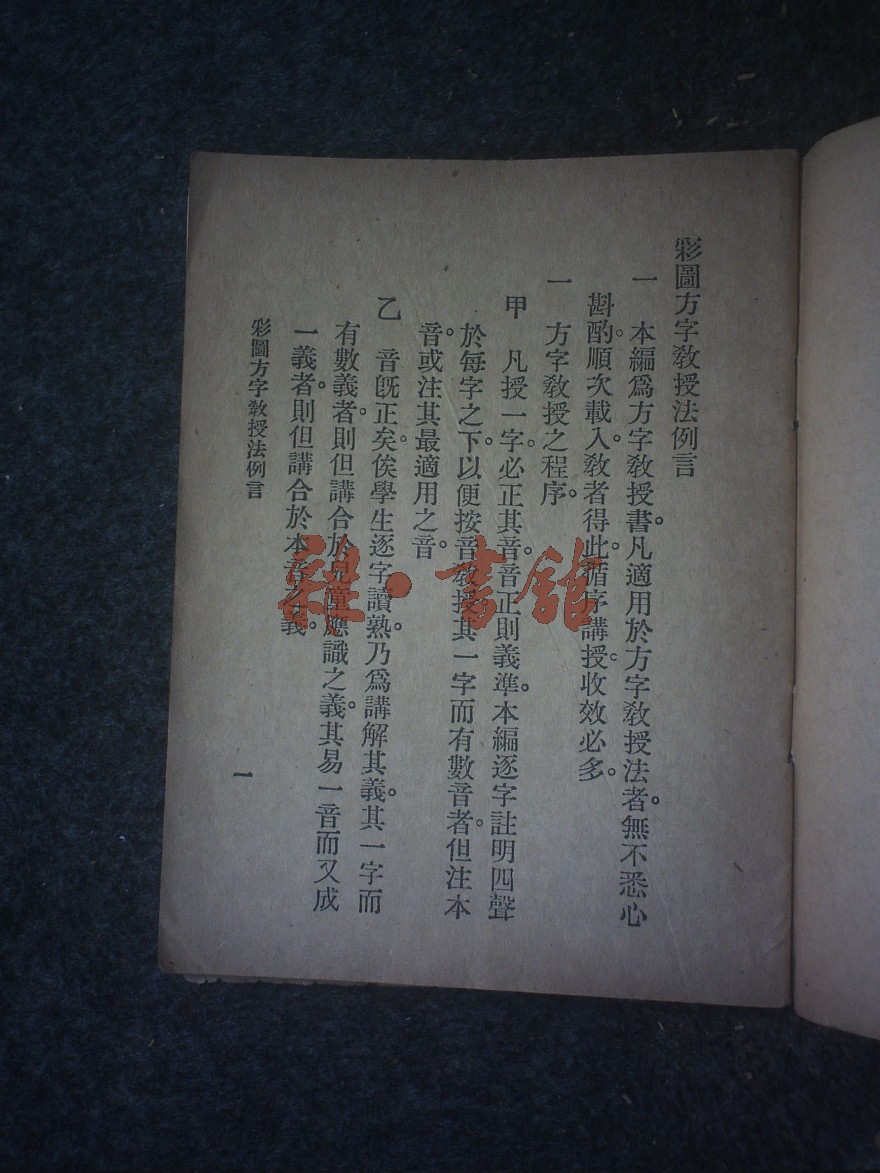 彩圖方字敎授法例言
一　本編爲方字敎授書。凡適用於方字敎授法者。無不悉心
斟酌。順次載入。敎者得此。循序講授。收效必多。
一　方字敎授之程序。
甲　凡授一字。必正其音。音正則義準。本編逐字註明四聲
於每字之下。以便按音敎授。其一字而有數音者。但注本
音。或注其最適用之音。
乙　音旣正矣。俟學生逐字讀熟。乃爲講解其義。其一字而
有數義者。則但講合於兒童應識之義。其易一音而又成
一義者。則但講合於本音之義。
彩圖方字敎授法例言
一
雜·書館